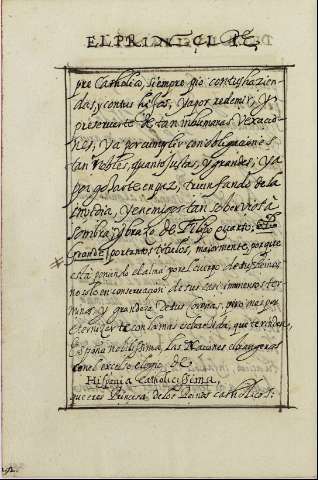 EL PRINCIPE
pre Catholico, siempre pio con tus hazien-
das, y con tus hijos, ya por redemir, y
preservarte de tan inhumanas vexacio-
nes, ya por cumplir con obligaciones
tan nobles, quanto justas, y grandes, ya
por gozarte en paz, triunfando de la
invidia, y enemigos tan sobervios à
sombra, y brazo de Filipo quarto, el
grande, por tantos titulos, maiormente, porque
està poniendo el alma por el cuerpo de sus Reinos
no solo en conservacion de sus casi immensos ter-
minos y grandeza de tus coronas, pero mas por
eternizarte con la mas esclarecida, que te rinden,
España nobilissima, las Naciones estrangeras
con el excelso elogio de
Hispania Catholicissima,
que eres Princesa de los Reinos catholicos: